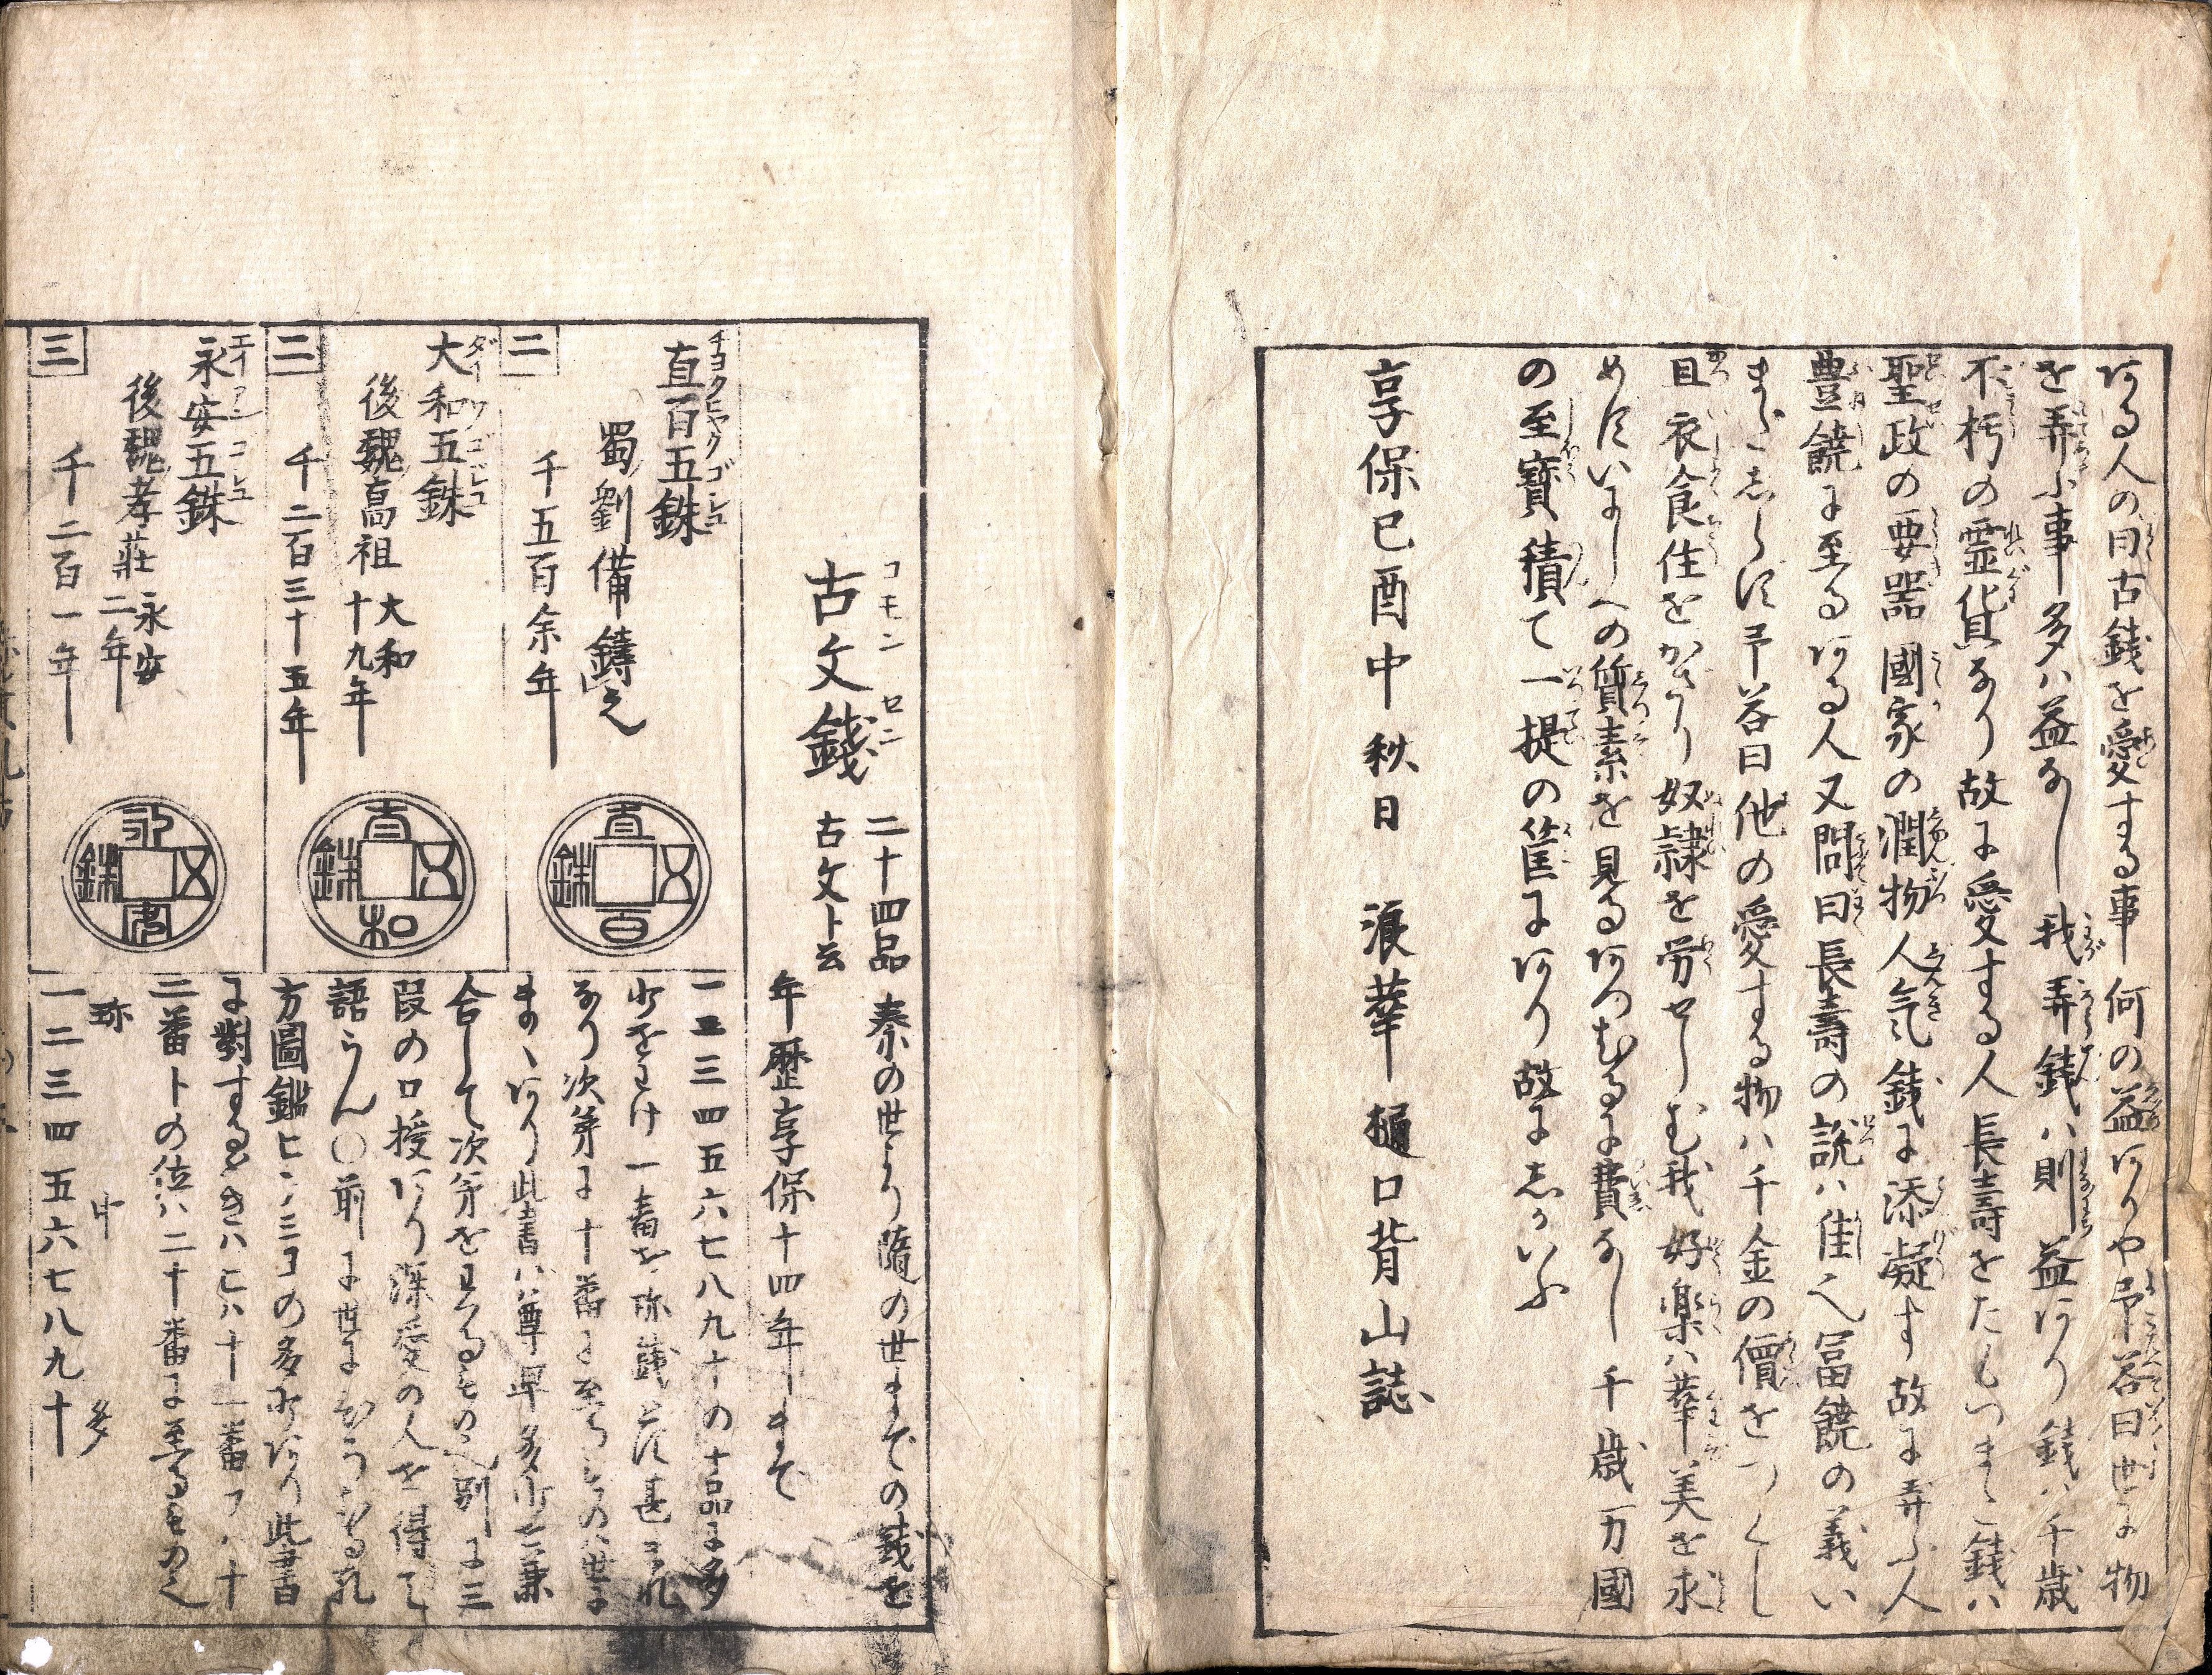 ある人の曰古銭を愛する事何の益ありや予答曰世に物
を弄ふ事多ハ益なし我弄銭ハ則益あり銭ハ千歳
不朽の霊貨なり故に愛する人長壽をたもつまた銭ハ
聖政の要噐國家の潤物人気銭に添凝す故に弄ふ人
豊饒に至るある人又問曰長壽の説ハ佳也冨饒の義い
まだしらず予答曰他の愛する物ハ千金の價をつくし
且衣食住をかざり奴隷を労せしむ我好楽ハ華美を求
めずいにしへの質素を見るあつむるに費なし千歳万國
の至寶積て一提の筐にあり故にしかいふ
享保己酉中秋日 浪華樋口背山誌
古文錢 コモンセニ
二十四品 秦の世より隨の世までの銭を
古文ト云
年歴享保十四年まで
直百五銖 チヨクヒヤクゴシユ
蜀劉備鑄之
千五百余年
二
大和五銖 ダイワゴシユ
後魏高祖 大和
十九年
千二百三十五年
二
永安五銖 エイアンゴシユ
後魏孝莊 永安
二年
千二百一年
三
直百五銖
大和五銖
永安五銖
一二三四五六七八九十の十品に多
少をわけ一番を珎銭とす甚まれ
なり次第に十番に至るものハ世に
まゝあり此書ハ尊卑多少を兼
合して次第を見るもの也別に三
段の口授あり深愛の人を得て
語らん〇前に世に
方圖鑑
に對するときハ
二番トの位ハ二十番に至るもの也
珎 中 多
一二三四五六七八九十